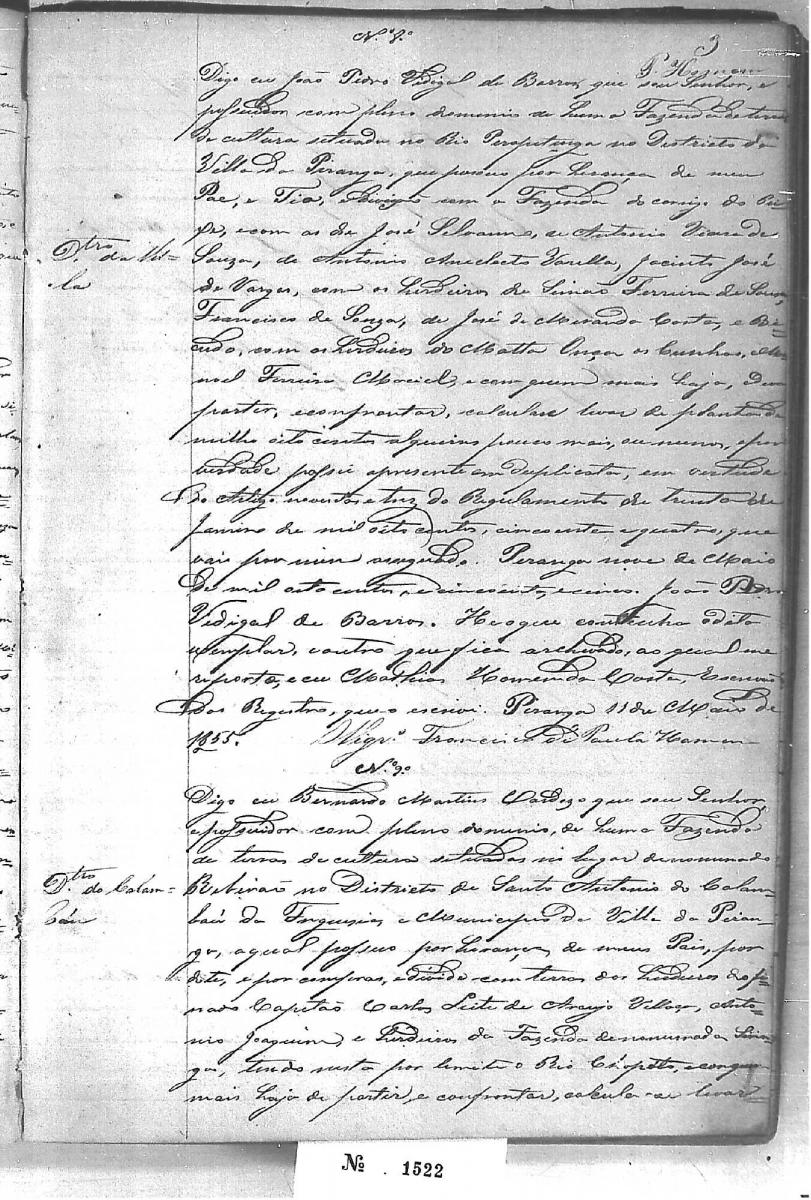 N.º 8.º
3
P. Homem
Digo eu João Pedro Vidigal de Barros, que sou Senhor, e
possuidor com pleno dominio de huma Fazenda de terras
de cultura situada no Rio Pirapetinga no Districto da
Villa da Piranga, que possuo por herança de meu
Pae, e Tia, e divide com a Fazenda do corrego do
e com as de José, de Antonio Vieira de
D.tro da Vil=
Souza, de Antonio Anecleto Varella, Jacinto José
la
de Vargas, com os herdeiros de Simão Ferreira de Souza,
Francisco de Souza, de José de Miranda Costa, e Bi=
cudo, com os herdeiros do Matta Onça os Cunhas, Ma=
noel Ferreira Maciel, e com quem mais haja, de
partir, e confrontar, calcula-se levar de planta de
milho oito centos alqueires pouco mais, ou menos, e por
verdade possui apresente em duplicata, em virtude
do Artigo noventa e tres do Regulamento de trinta de
Janeiro de mil oito centos, cincoenta e quatro, que
vai por mim assignado. Piranga nove de Maio
de mil oito centos, e cincoenta, e cinco. João Pedro
Vidigal de Barros. He o que continha o dito
exemplar, e outro que fica archivado, ao qual me
reporto, e eu Mathias Homem da Costa, Escrivão
dos Registros, que o escrevi. Piranga 11 de Maio de
1855. O Vigr.º Francisco de Paula Homem
N.º 9.º
Digo eu Bernardo Martins Cardozo que sou Senhor,
e possuidor com pleno dominio, de huma Fazenda
de terras de cultura situadas no lugar denominado
D.tro do Calam=
Ribeirão no Districto de Santo Antonio do Calam=
báu
baú da Freguesia e Municipio da Villa da Piran=
ga, a qual possuo por herança de meus Pais, por
dote, e por compras, e divide com terras dos herdeiros do fi=
nado Capitão Carlos Leite de Araujo Villaça, Anto=
nio Joaquim, e herdeiros da Fazenda denominada
ga, tendo nesta por limite o Rio Chopotó, e com quem
mais haja de partir, e confrontar, calcula-se levar
Nº 1522